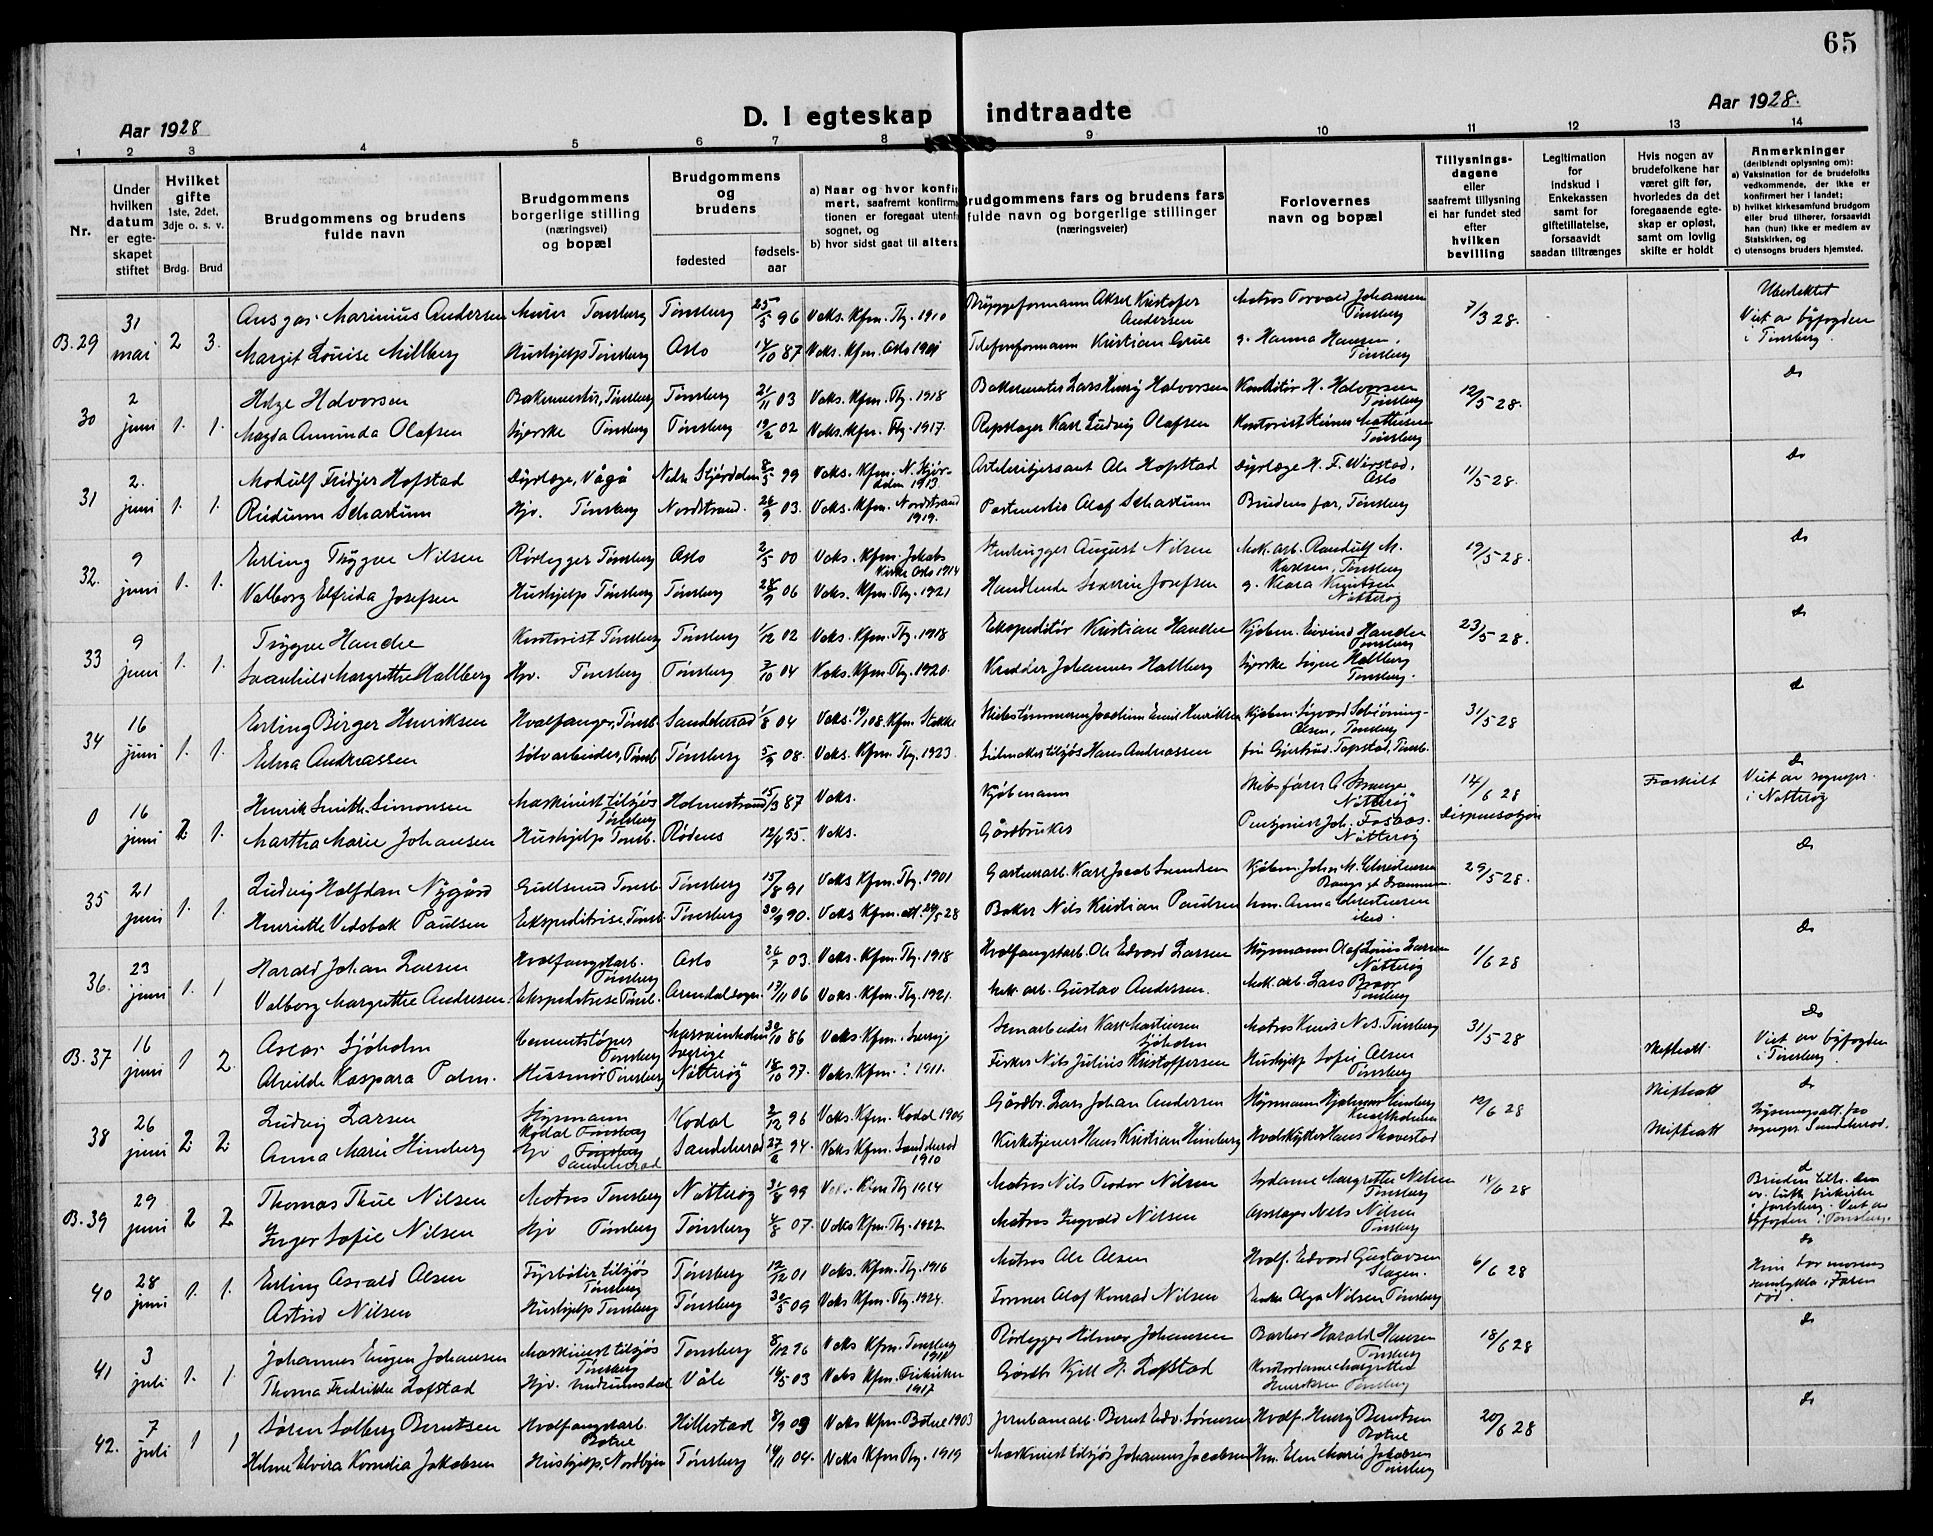 65
Aar 1928
D. I egteskap indtraadte
Aar 1928.
1 2 3 4 5 6 7 8 9 10 11 12 13 14
Nr.
Under hvilken datum er egteskapet stiftet
Hvilket gifte 1ste, 2det, 3dje o. s. v.
Brdg. Brud
Brudgommens og brudens fulde navn
Brudgommens borgerlige stilling (næringsvei) og bopæl
Brudgommens og brudens
fødested
fødselsaar
a) Naar og hvor konfir
mert, saafremt konfirma
tionen er foregaat utenf
sognet, og
b) hvor sidst gaat til alters
Brudgommens fars og brudens fars
fulde navn og borgerlige stillinger
(næringsveier)
Forlovernes
navn og bopæl
Tillysningsdagene
eller
saafremt tillysning
ei har fundet sted
efter
hvilken
bevilling
Legitimation
for
indskud i
Enkekassen
samt for
giftetillatelse,
forsaavidt
saadan tiltrænges
Hvis nogen av
brudefolkene har
været gift før,
hvorledes da det
foregaaende egteskap er opløst,
samt om lovlig
skifte er holdt
Anmerkninger
(deriblandt oplysning om):
a) Vaksination for de brudefolks
vedkommende, der ikke er
konfirmert her i landet;
b) hvilket kirkesamfund brudgom
eller brud tilhører, forsaavidt
han (hun) ikke er medlem av
Statskirken, og
c) utensogns bruders hjemsted.
B. 29 31 mai 2 3.
Ansgar Marinius Andersen Murer Tønsberg Tønsberg 25/5 96 Vaks. Kfm. Tbg. 1910 Bryggeformann Aksel Kristofer Andersen Matros Torvald Johansen Tønsberg 7/3 28. Ubeslektet
Margit Louise Millberg Hushjelp Tønsberg Oslo 14/10 87 Vaks. Kfm. Oslo 1901 Telefonformann Kristian Grue g. Hanna Hansen, Tønsberg Viet av byfogden i Tønsberg.
30 2 juni 1. 1.
Helge Halvorsen Bakermester, Tønsberg Tønsberg 21/11 03 Vaks. Kfm. Tbg. 1918 Bakermester Lars Henrij Halvorsen Konditor H. Halvorsen Tønsberg 12/5 28. do
Magda Amunda Olafsen Syerske Tønsberg Tønsberg 19/2 02 Vaks. Kfm. Tbg. 1917. Repslager Karl Ludvig Olafsen Kontorist Tønsberg
31 2. juni 1. 1.
Modulf Fridjer Hofstad Dyrlæge, Vågå Nedre Stjørdalen 8/5 99 Vaks. Kfm. N. Stjørdalen 1913. Ole Hopstad Dyrlæge H. F. Oslo 11/5 28. do
Ridunn Schartum Hjv. Tønsberg Nordstrand. 26/9 03. Vaks. Kfm. Nordstrand 1919. Postmester Olaf Schartum Brudens far, Tønsberg
32. 9 juni 1. 1.
Erling Trygve Nilsen Rørlegger Tønsberg Oslo 2/5 00 Vaks. Kfm. Jakobs Kirke Oslo 1914 Stenhugger August Nilsen Mek. arb. Randulf M. Karlsen, Tønsberg 19/5 28. do
Valborg Elfrida Josefsen Hushjelp Tønsberg Tønsberg 28/9 06 Vaks. Kfm. Tbg. 1921 Handlende Severin Josefsen g. Klara Knutsen Nøtterøy
33 9 juni 1. 1.
Trygve Handre Kontorist Tønsberg Tønsberg 1/12 02 Vaks. Kfm. Tbg. 1918 Ekspeditør Kristian Handre Kjøbm. Eivind Handre Tønsberg 23/5 28. do
Svanhild Margrethe Hallberg Hjv. Tønsberg Tønsberg 3/10 04 Vaks. Kfm. Tbg. 1920. Johannes Hallberg Syerske Signe Hallberg Tønsberg.
34 16 juni 1. 1.
Erling Birger Henriksen Hvalfanger, Tønsb. Sandeherad 1/8 04 Vaks. 19/1 08. Kfm. Stokke Skibstømmerm. Joachim Emil Henriksen Kjøbm. Sigvard Schiøning-Olsen, Tønsberg 31/5 28 do
Edna Andreassen Sølvarbeider, Tønsb. Tønsberg 5/9 08. Vaks. Kfm. Tbg. 1923. Seilmaker tilsjøs Hans Andreassen frk Gjertrud Topstad, Tønsb.
0 16 juni 2 1.
Henrik Smith-Simonsen Maskinist tilsjøs Tønsberg Holmestrand 15/3 87 Vaks. Kjøbmann Skibsfører A. Strange Nøtterøy 14/6 28 Fraskilt do Viet av sognepr. i Nøtterøy
Martha Marie Johansen Hushjelp Tønsb. Rødenes 12/4 95. Vaks. Gårdbruker Pensjonist Joh. Fossaas. Nøtterøy Dispensasjon
35 21 juni 1. 1.
Ludvig Halfdan Nygård Gullsmed Tønsb. Tønsberg 15/8 91 Vaks Kfm. Tbg. 1901 Garverarb. Karl Jacob Kjøbm. Johan M. Christensen Drammen. 29/5 28. do
Henriette Vedsbak Paulsen Ekspeditrise, Tønsb. Tønsberg 30/9 90. Vaks Kfm. alt. 24/5 28 Baker Nils Kristian Paulsen hm. Anna Christensen ibid.
36. 23 juni 1. 1
Harald Johan Larsen Hvalfangstarb. Tønsberg Oslo 26/7 03. Vaks. Kfm. Tbg. 1918 Hvalfangstarb. Ole Edvard Larsen Styrmann Olaf Louis Larsen Nøtterøy 1/6 28 do
Valborg Margrethe Andersen. Ekspeditrise Tønsb. Arendalsogn. 17/11 06 Vaks. Kfm. Tbg. 1921. Mek. arb. Gustav Andersen. Mek. arb. Lars Braar Tønsberg
B. 37 16 juni 1 2.
Oscar Sjøholm Cementstøper Tønsberg Sverige 30/10 86 Vaks Kfm. i Sverige Karl Martinsen Sjøholm Matros Knut Tønsberg 31/5 28 do Viet av byfogden i Tønsberg.
Alvilde Kaspara Palm. Husmor Tønsberg Nøtterøy 18/10 97. Vaks. Kfm. ? 1911. Fisker Nils Julius Kristoffersen Hushjelp Sofie Olsen Tønsberg Skifteatt.
38 26 juni 2 2.
Ludvig Larsen Styrmann Kodal Tønsberg Kodal 2/12 96 Vaks. Kfm. Kodal 1909 Gårdbr. Lars Johan Andersen Styrmann Hjalmar Himberg 12/6 28 Skifteatt do
Anna Marie Himberg Hjv Tønsberg Sandeherad Sandeherad 27/2 94. Vaks Kfm. Sandeherad 1910 Kirketjener Hans Kristian Himberg Hvalskytter Hans Skovestad Skifteatt Lysningsatt. fra sognepr. Sandeherad.
B. 39 29 juni 2 2
Thomas Thue Nilsen Matros Tønsberg Nøtterøy 31/8 99 Vaks. Kfm Tbg 1914 Matros Nils Teodor Nilsen Margrethe Nilsen Tønsberg 14/6 28 do
Inger Sofie Nilsen Hjv Tønsberg Tønsberg 4/8 07. Vaks Kfm. Tbg. 1922. Matros Ingvald Nilsen Opslager Nels Nilsen Tønsberg Bruden tilh. den ev. luth. frikirke i Jarlsberg. Viet av byfogden i Tønsberg.
40 28 juni 1. 1.
Erling Osvald Olsen Fyrbøter tilsjøs Tønsberg Tønsberg 12/12 01 Vaks. Kfm. Tbg. 1916 Matros Ole Olsen Hvalf. Edvard Gustavsen Slagen. 6/6 28 do
Astrid Nilsen Hushjelp Tønsberg Tønsberg 30/5 09 Vaks Kfm. Tbg. 1924. Former Olaf Konrad Nilsen Enke Olga Nilsen Tønsberg Hun har morens samtykke. Faren død.
41 3 juli 1. 1.
Johannes Eugen Johansen Maskinist tilsjøs Tønsberg Tønsberg 8/12 96 Vaks Kfm. Tønsberg 1911 Rørlegger Hilmar Johansen Barber Harald Hansen Tønsberg 18/6 28 do
Thoma Fredrikke Lofstad Hjv. Undrumsdal Våle 14/5 03 Vaks Kfm. Frikirken 1917 Gårdbr. Kjell H. Lofstad Kontordame Margrethe Henriksen Tønsberg
42. 7 juli 1 1
Søren Solberg Berntsen Hvalfangstarb. Botne Hillestad 8/9 03 Vaks Kfm. Botne 1903 Jernbanearb. Bernt Edv. Sørensen Hvalf. Henry Berntsen Botne 20/6 28 do
Helene Elvira Kornelia Jakobsen Hushjelp, Nordbyen Tønsberg 14/11 04. Vaks Kfm Tbg. 1919 Maskinist tilsjøs Johannes Jacobsen Hm. Elen Marie Jakobsen Tønsberg